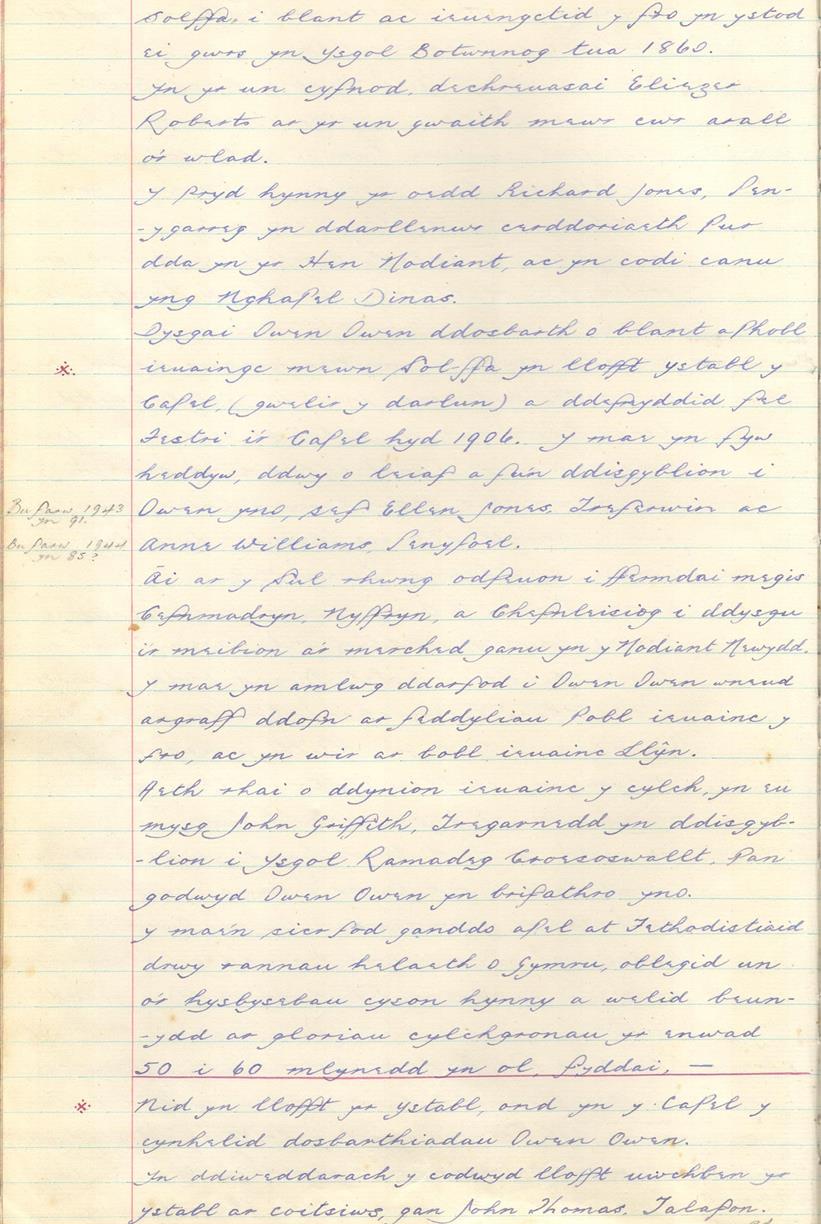 Solffa, i blant ac ieuengctid y fro yn ystod
ei gwrs yn Ysgol Botwnnog tua 1860.
Yn yr un cyfnod, dechreuasai Eliezer
Roberts ar yr un gwaith mewn cwr arall
o'r wlad.
Y pryd hynny yr oedd Richard Jones, Pen-
-ygarreg yn ddarllenwr cerddoriaeth pur
dda yn yr Hen Nodiant, ac yn codi canu
yng Nghapel Dinas.
Dysgai Owen Owen ddosbarth o blant a phobl
※ ieuaingc mewn Sol-ffa yn llofft ystabl y
Capel, (gwelir y darlun) a ddefnyddid fel
Festri i'r Capel hyd 1906. Y mae yn fyw
heddyw, ddwy o leiaf a fu'n ddisgyblion i
Bu farw 1943
yn 91.
Owen yno, sef Ellen Jones, Treferwin ac
Bu farw 1944
yn 85?
Anne Williams, Penyfoel.
Âi ar y Sul rhwng odfeuon i ffermdai megis
Cefnmadryn, Nyffryn, a Chefnleisiog i ddysgu
i'r meibion a'r merched ganu yn y Nodiant Newydd.
Y mae yn amlwg ddarfod i Owen Owen wneud
argraff ddofn ar feddyliau pobl ieuainc y
fro, ac yn wir ar bobl ieuainc Llŷn.
Aeth rhai o ddynion ieuainc y cylch, yn eu
mysg John Griffith, Tregarnedd yn ddisgyb-
-lion i Ysgol Ramadeg Croesoswallt, pan
godwyd Owen Owen yn brifathro yno.
Y mae'n sicr fod ganddo apel at Fethodistiaid
drwy rannau helaeth o Gymru, oblegid un
o'r hysbysebau cyson hynny a welid beun-
-ydd ar gloriau cylchgronau yr enwad
50 i 60 mlynedd yn ol, fyddai, —
※ Nid yn llofft yr ystabl, ond yn y Capel y
cynhelid dosbarthiadau Owen Owen.
Yn ddiweddarach y codwyd llofft uwchben yr
ystabl a'r coitsiws, gan John Thomas, Talafon.